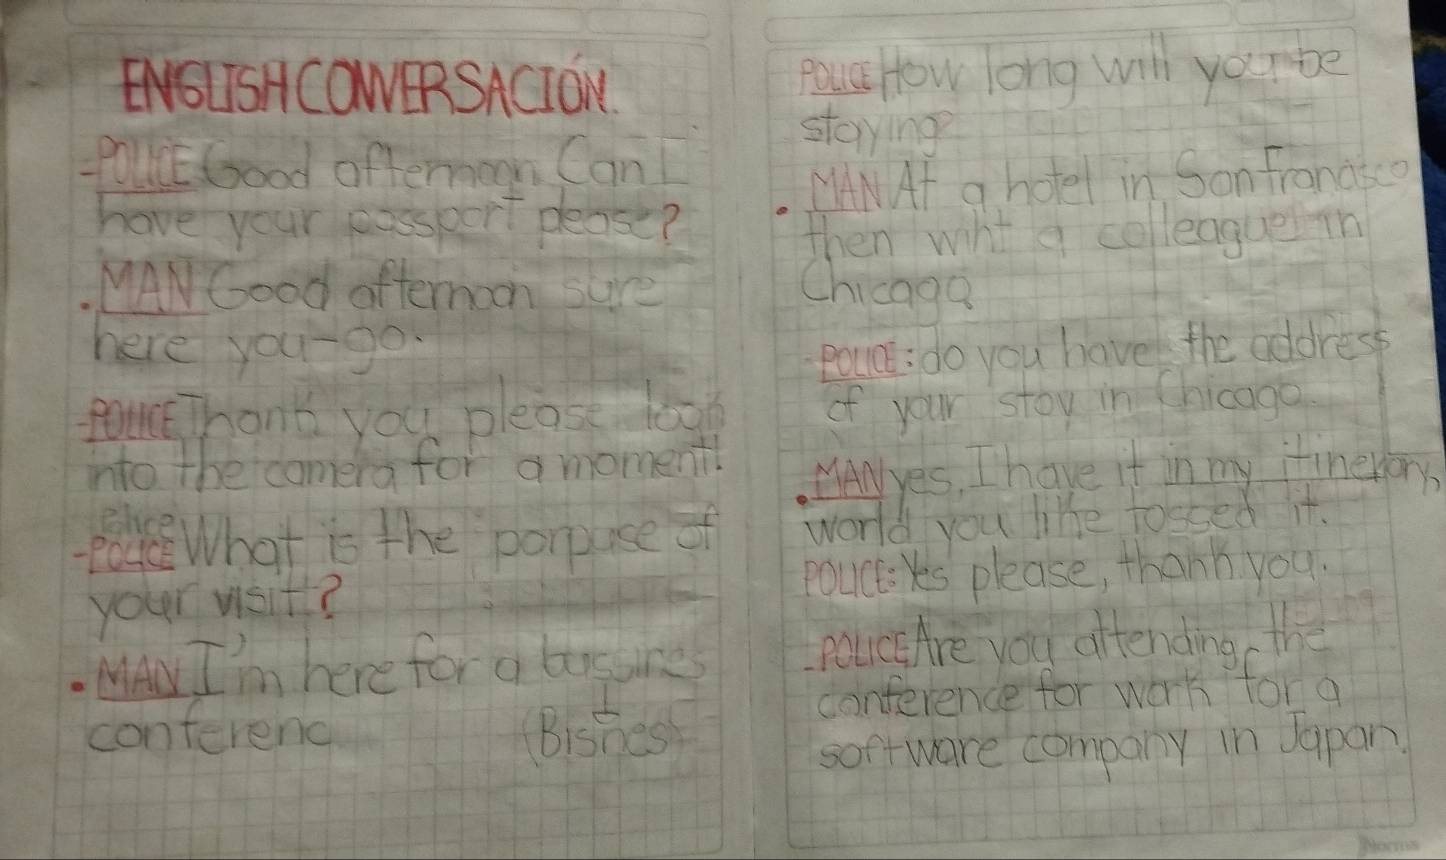 ENGLISH CONVERSACIÓN.
-POLICE Good afternoon Can I
have your passport please?
.MAN Good afternoon sure
here you-go.
-POLICE Thank you please look
into the camera for a moment.
Police
-POLICE What is the porpuse of
your visit?
.MAN I'm here for a bussines
conferenc (Bisnes)
POLICE How long will your be
staying?
.MAN At a hotel in San Francisco
then wiht a colleague in
Chicago
POLICE: do you have the address
of your stay in Chicago.
.MAN yes, I have it in my itinerary,
world you like to see it.
POLICE: Yes please, thank you.
-POLICE Are you attending the
conference for work for a
software company in Japan.
Norma